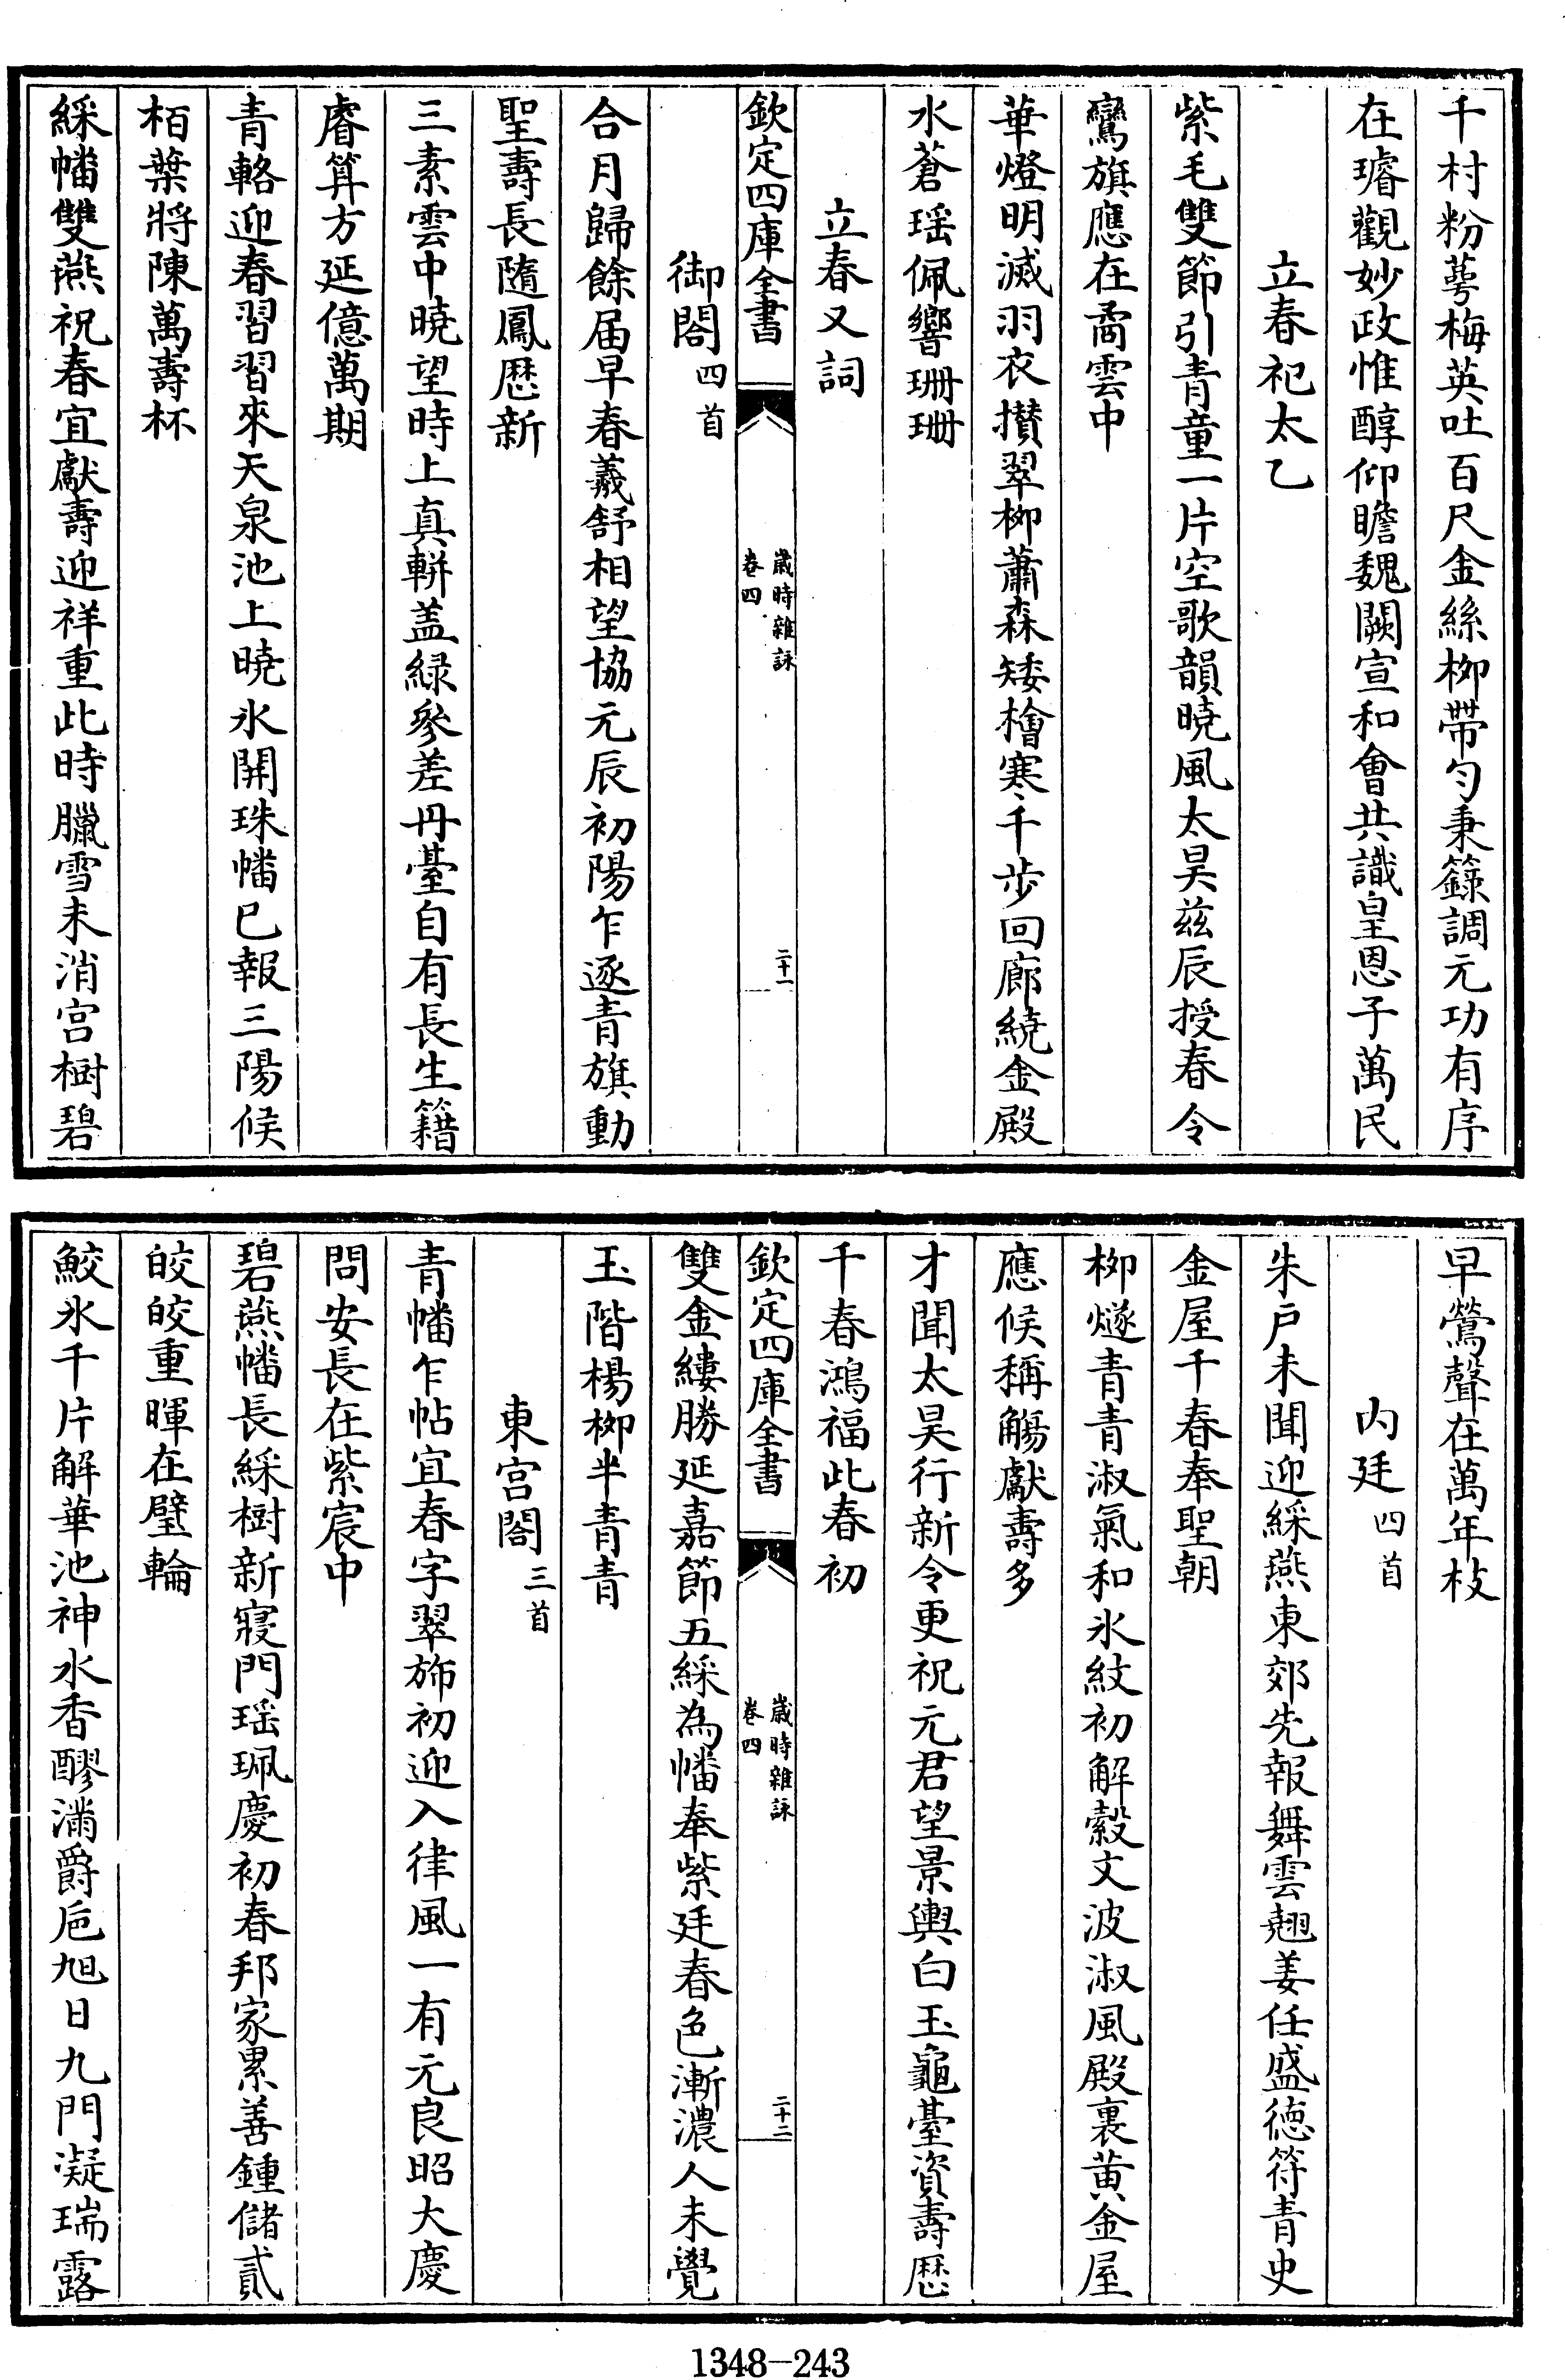 千村粉萼梅英吐百尺金絲栁帶勻秉籙調元功有序
在璿觀妙政惟醇仰瞻魏闕宣和會共識皇恩子萬民
立春祀太乙
紫毛雙節引青童一片空歌韻曉風太昊兹辰授春令
鸞旗應在矞雲中
華燈明滅羽衣攅翠栁蕭森矮檜寒千步回廊繞金殿
水蒼瑶佩響珊珊
立春又詞
欽定四庫全書
歲時雜詠
卷四
二十一
御閤四首
合月歸餘届早春羲舒相望協元辰初陽乍逐青旗動
聖壽長隨鳳歴新
三素雲中曉望時上真軿盖緑參差丹臺自有長生籍
睿算方延億萬期
青輅迎春習習來天泉池上曉氷開珠幡已報三陽候
栢葉將陳萬壽杯
綵幡雙燕祝春宜獻壽迎祥重此時臘雪未消宫樹碧
早鶯聲在萬年枝
内廷四首
朱戶未聞迎綵燕東郊先報舞雲翹姜任盛徳符青史
金屋千春奉聖朝
栁燧青青淑氣和氷紋初解縠文波淑風殿裏黄金屋
應候稱觴獻壽多
才聞太昊行新令更祝元君望景輿白玉龜臺資壽歴
千春鴻福此春初
欽定四庫全書
歲時雜詠
卷四
二十二
雙金縷勝延嘉節五綵為幡奉紫廷春色漸濃人未覺
玉階楊栁半青青
東宫閤三首
青幡乍帖宜春字翠斾初迎入律風一有元良昭大慶
問安長在紫宸中
碧燕幡長綵樹新寢門瑶珮慶初春邦家累善鍾儲貳
皎皎重暉在璧輪
鮫氷千片解華池神水香醪滿爵巵旭日九門凝瑞露
1348-243